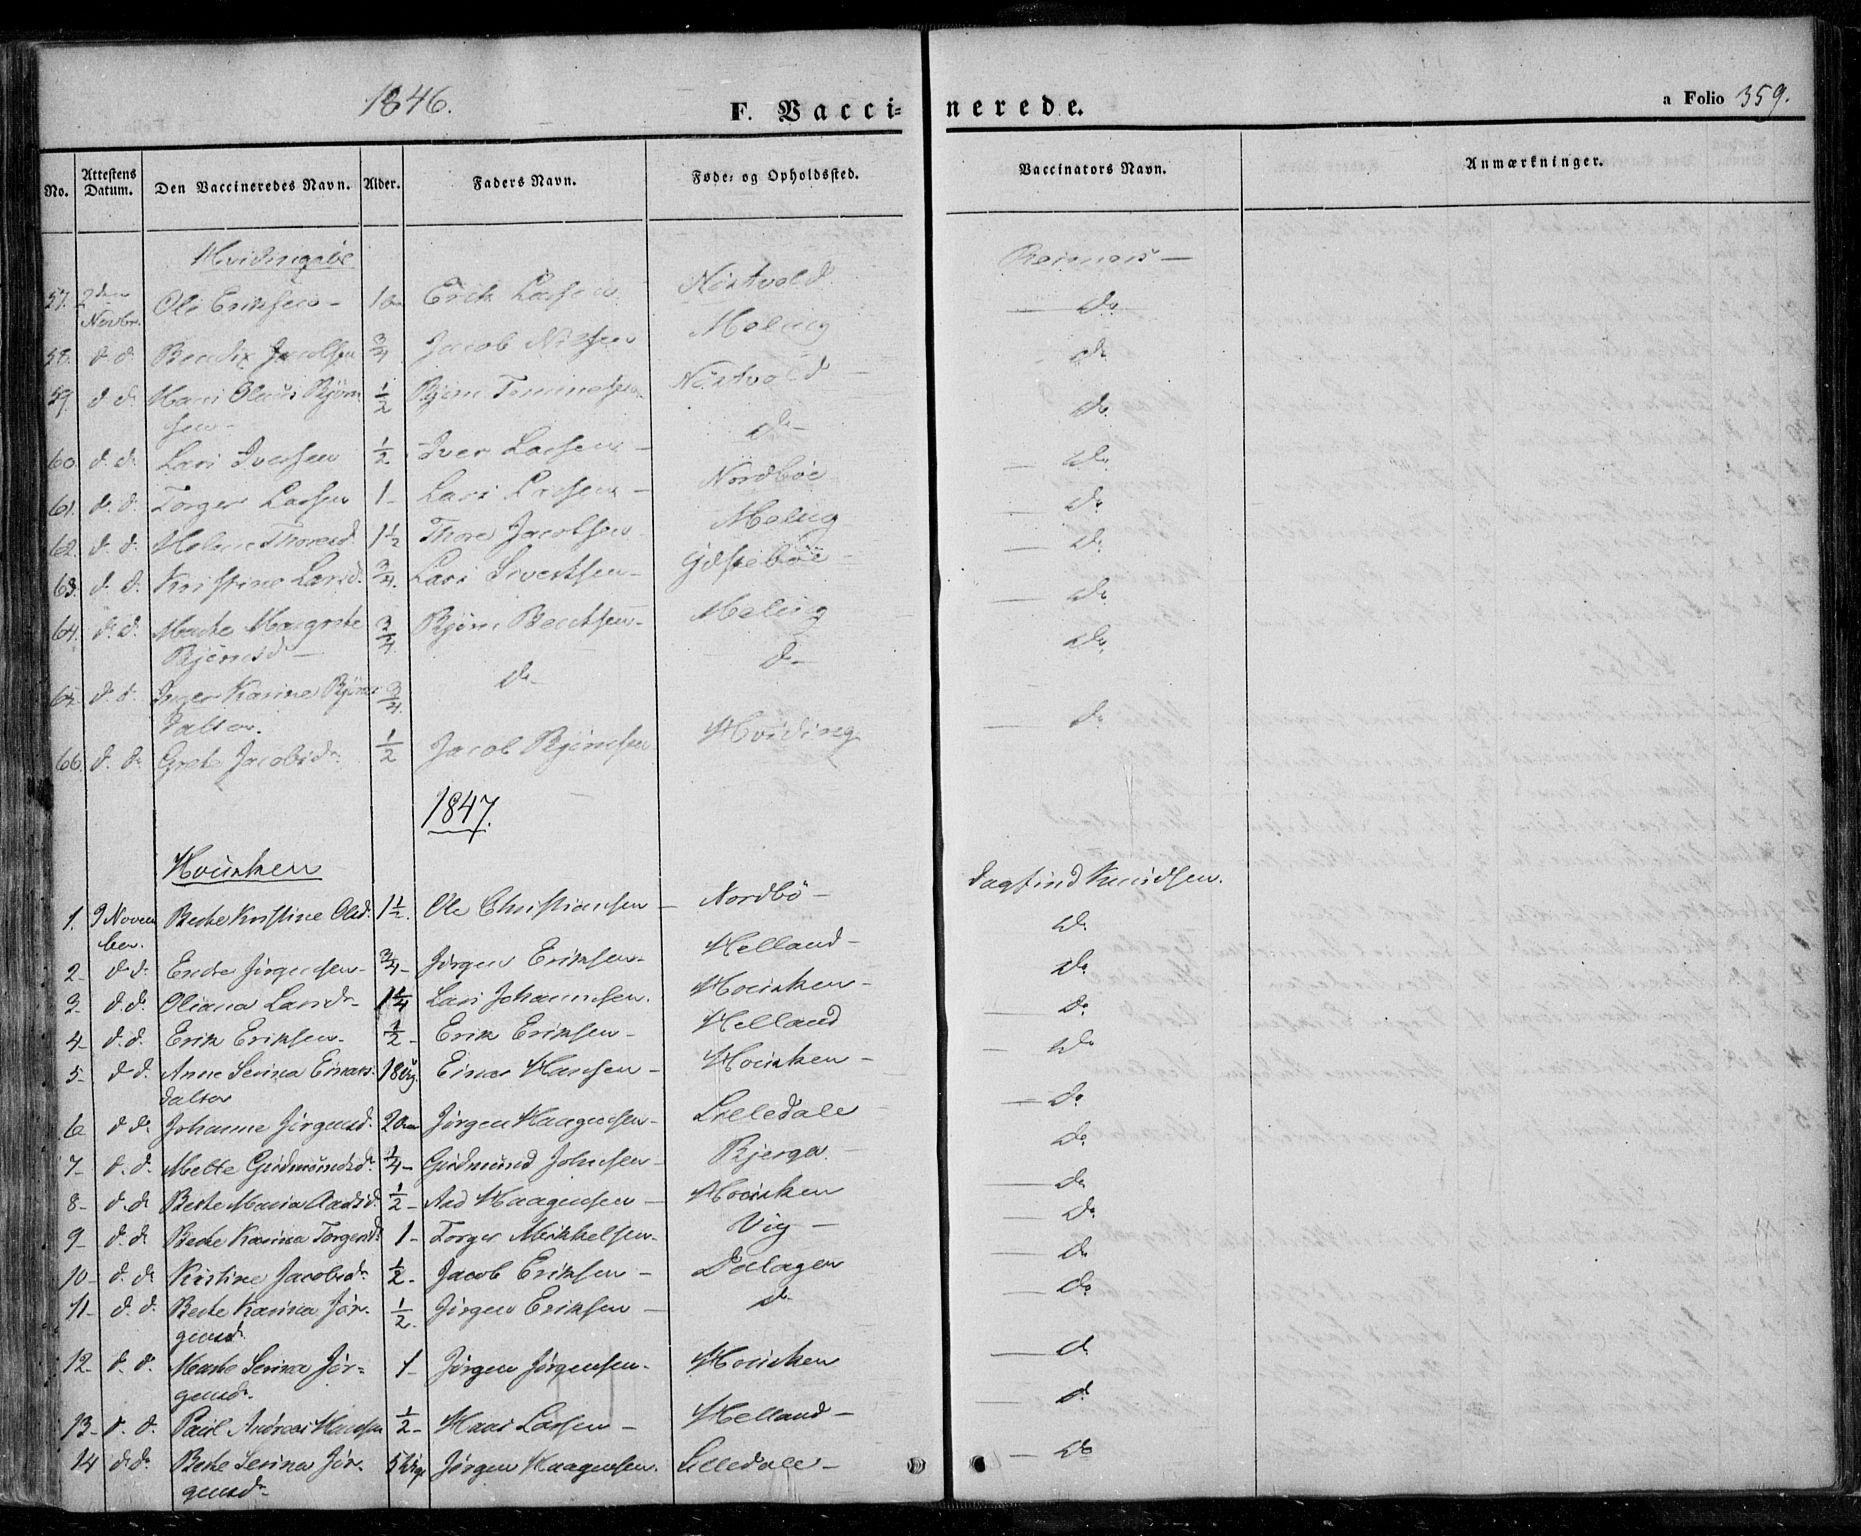 1846.
F. Vaccinerede.
a Folio 359.
No. Attestens Datum. Den Vaccineredes Navn. Alder. Faders Navn. Føde- og Opholdssted. Vaccinators Navn. Anmærkninger.
Hvidingsöe
57. 2den Novbr. Ole Eriksen - Erik Larsen Nöstvold do
58. d. d. Bendix Jacobsen 3/4 Jacob Nielsen Meling do
59. d. d. Hans Olaus Bjørn 1/2 Bjørn Nöstvold - do
sen -
60. d. d. Lars Iversen 1/2 Iver Larsen - do - — do
61. d. d. Torger Larsen 1 - Lars Larsen - Nordböe — do
62. d. d. Helene Thoresd. 1 1/2 Thore Jacobsen Meling — do
63. d. d. Kristine Larsd. 3/4. Lars Sivertsen - - — do
64. d. d. Marte Margrete 3/4 Bjørn Bentsen - Meling — do
Bjørnsd -
65. d. d. Inger Karine Bjørns 3/4. do - do -
datter.
66. d. d. Grete Jacobsdr. 1/2 Jacob Bjørnsen Hviding — do
1847.
Housken
1. 9 Novem Berte Kristine Olsd. 1 1/2. Ole Christiansen - Nordbö - Dagfind Knudsen.
ber. do
2 - d d. Endre Jørgensen - 3/4 - Jørgen Eriksen - Helland - do
3 - d. d. Oliana Larsdr - 1 1/4 Lars Johannesen. Housken - — do
4 - d. d. Erik Eriksen - 1/2 - Erik Eriksen - Helland — do
5 - d d. Anne Serina Einars. 18 Einar Hansen - Housken -
datter — do
6 d d. Johanne Jørgensd. 2 Jørgen Haagensen - Lilledale — do
7 - d. d. Mette Gudmundsdr. 1/4 - Gudmund Johnsen - Bjerga - — do
8 - d. d Berte Maria Aadsd. 1/2 - Aad Haagensen - Housken — do
9 - d. d. Berte Karina Torgersd. 1 - Torger Mikkelsen - Vig - — do
10 - d. d Kristine Jacobsdr. 1/2 - Jacob Eriksen - Dalagen — do
11 - d. d. Berte Karina Jør- 1/2. Jørgen Eriksen - do
gensd.
12. d. d. Marte Serina Jør- 1 - Jørgen Jørgensen. Housken — d
gensdr.
13 - d. d. Paul Andreas Hansen 1/2 - Hans Larsen - Helland - — d
14 d. d. Berte Serina Jør- 5 Jørgen Haagensen. Lilledale - — do
gensdr -